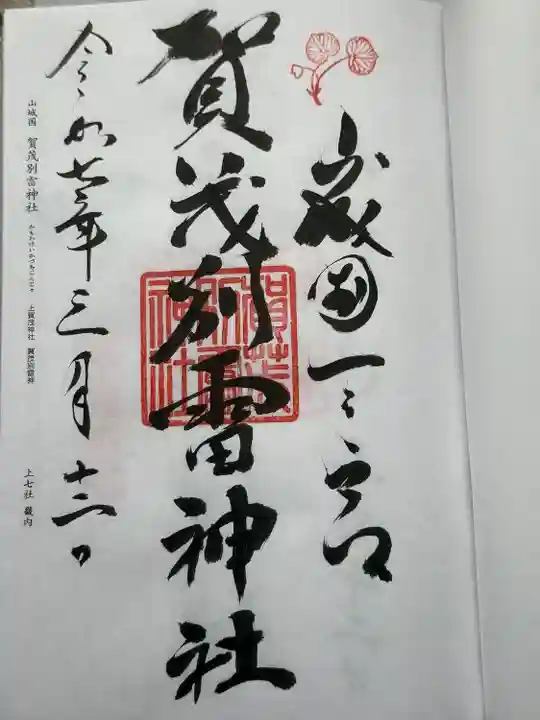 山城國一之宮
賀茂別雷神社
賀茂別雷神社
令和七年三月十二日
山城国 賀茂別雷神社 かもわけいかづちじんじゃ 上賀茂神社 賀茂別雷神
上七社 畿内